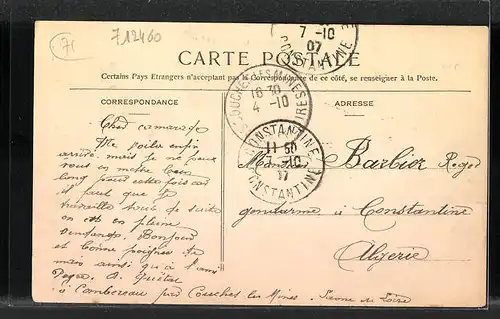 71
712460
7 -10
07
CONSTANTINE
CARTE POSTALE
Certains Pays Etrangers n'acceptant pas la Correspondance de ce côté, se renseigner à la Poste.
COUCHES-LES-MINES
16 30
4 -10
CORRESPONDANCE
ADRESSE
CONSTANTINE
11 50
7 -10
07
CONSTANTINE
Cher camarade
Me voila enfin
arrivé, mais je ne peux
vous en mettre bien
long pour cette fois car
il faut que je
travaille tout de suite
on est en pleine
vendange. Bonjour
et bonne poignée de
main ainsi qu'à l'ami
Monsieur Barbier Roger
gendarme à Constantine
Algérie
à Combereau par Couches les Mines. Saone et Loire